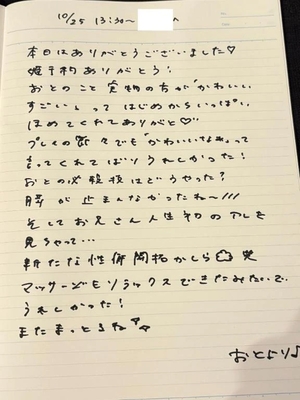 10/25 13:30〜
本日はありがとうございました♡
姫予約ありがとう!
おとのこと実物の方が「かわいい、
すごい」って はじめからいっぱい
ほめてくれてありがと♡
プレイの節々でも「かわいいなぁ」って
言ってくれてばりうれしかった!
おとの必殺技はどうやった?
腰が止まんなかったね〜///
そしてお兄さん人生初のアレを
見ちゃって…
新たな性癖開拓かしら 笑
マッサージもリラックスできたみたいで、
うれしかった!
またまっとるね
おとより♪